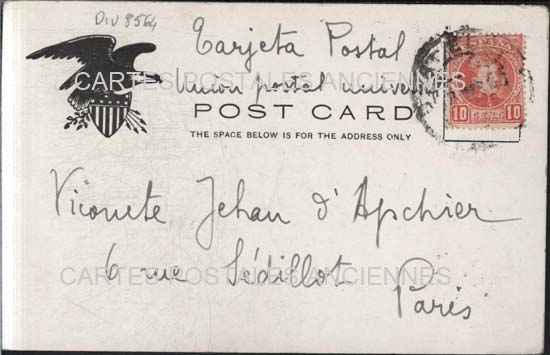 DIV 8564
Tarjeta Postal
CARTES POSTALES ANCIENNES
Union postal
POST CARD
THE SPACE BELOW IS FOR THE ADDRESS ONLY
10 CENT. 10
Vicomte Jehan d'Apchier
CARTES POSTALES ANCIENNES
6 rue Sédillot
Paris